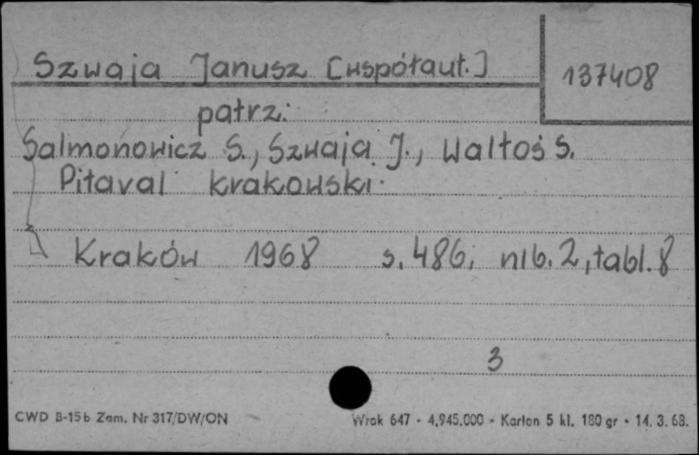 Szwaja Janusz [współaut.]
137408
patrz:
Salmonowicz S., Szwaja J., Waltoś S.
Pitaval krakowski.
Kraków 1968 s. 486, nlb. 2, tabl. 8
3
CWD B-15b Zam. Nr 317/DW/ON
Wrak 647 - 4.945.000 - Karton 5 kl. 180 gr - 14. 3. 68.